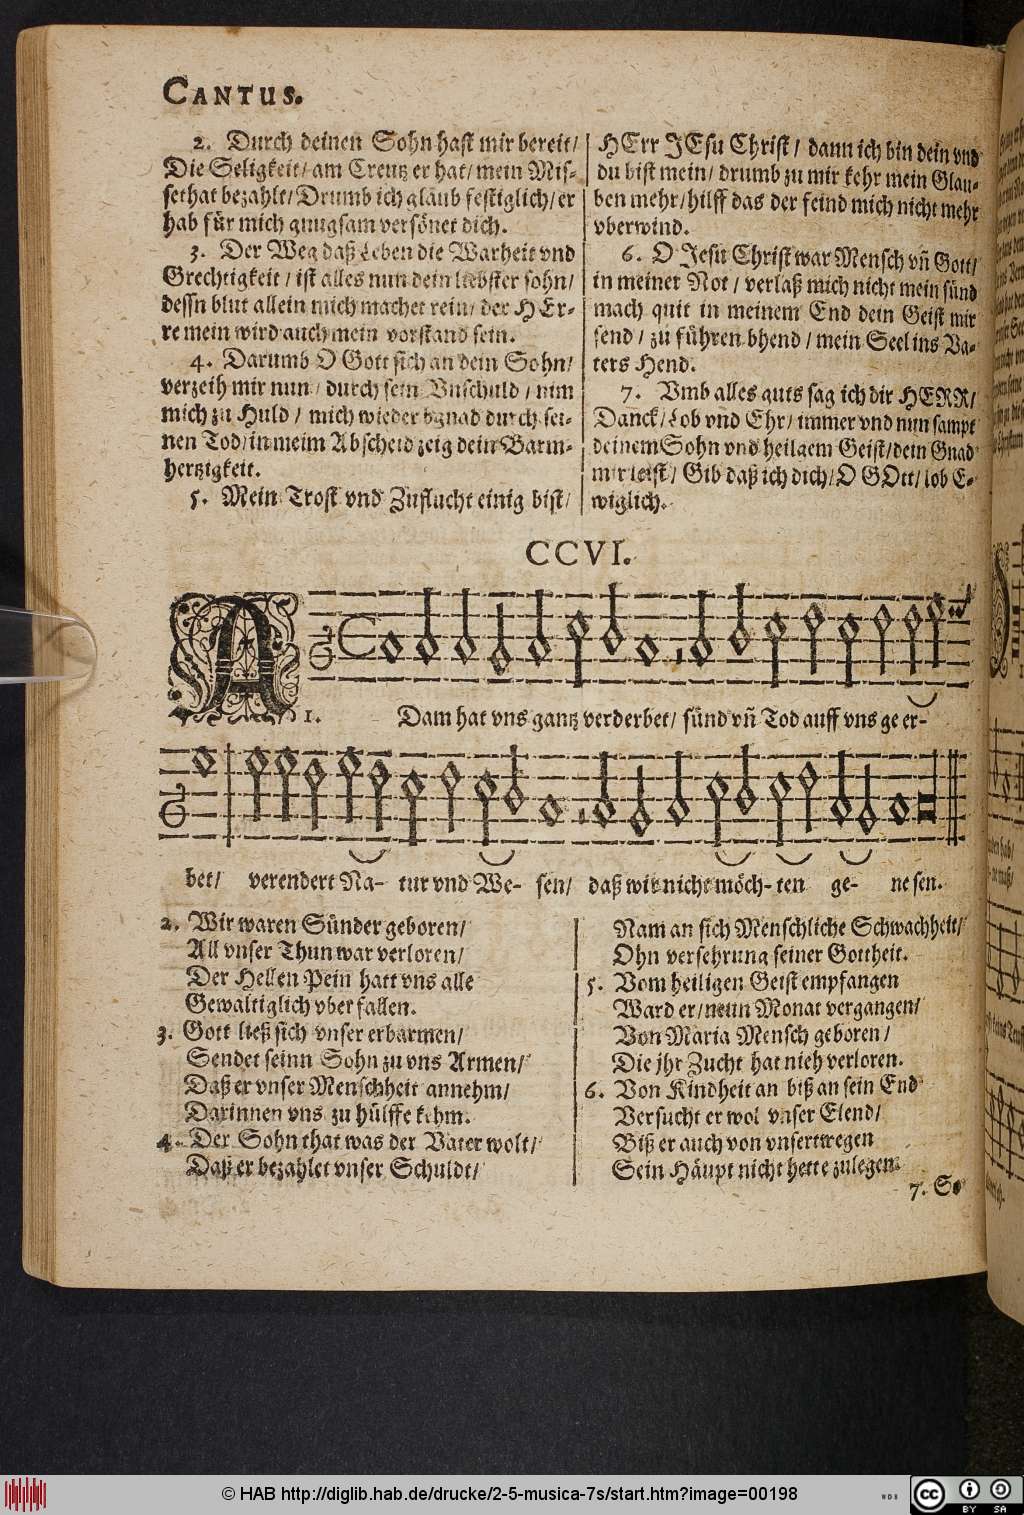 CANTUS.
2. Durch deinen Sohn hast mir bereit/
Die Seligkeit/ am Creutz er hat/ mein Mis-
sethat bezahlt/ Drumb ich gläub festiglich/ er
hab für mich gnugsam versönet dich.
3. Der Weg daß Leben die Warheit vnd
Grechtigkeit/ ist alles nun dein liebster sohn/
dessn blut allein mich machet rein/ der HEr-
re mein wird auch mein vorstand sein.
4. Darumb O Gott sich an dein Sohn/
verzeih mir nun/ durch sein Vnschuld/ nim
mich zu Huld/ mich wieder bgnad durch sei-
nen Tod/ in meim Abscheid zeig dein Barm-
hertzigkeit.
5. Mein Trost vnd Zuflucht einig bist/
HErr JEsu Christ/ dann ich bin dein vnd
du bist mein/ drumb zu mir kehr mein Glau-
ben mehr/ hilff das der feind mich nicht mehr
vberwind.
6. O Jesu Christ war Mensch vñ Gott/
in meiner Not/ verlaß mich nicht mein sünd
mach quit in meinem End dein Geist mir
send/ zu führen bhend/ mein Seel ins Va-
ters Hend.
7. Vmb alles guts sag ich dir HERR/
Danck/ Lob vnd Ehr/ immer vnd nun sampt
deinem Sohn vnd heilgem Geist/ dein Gnad
mir leist/ Gib daß ich dich/ O GOtt/ lob E-
wiglich.
CCVI.
1. ADam hat vns gantz verderbet/ sünd vñ Tod auff vns ge er-
bet/ verendert Na- tur vnd We- sen/ daß wir nicht möch- ten ge- ne sen.
2. Wir waren Sünder geboren/
All vnser Thun war verloren/
Der Hellen Pein hatt vns alle
Gewaltiglich vberfallen.
3. Gott ließ sich vnser erbarmen/
Sendet seinn Sohn zu vns Armen/
Daß er vnser Menschheit annehm/
Darinnen vns zu hülffe kehm.
4. Der Sohn that was der Vater wolt/
Daß er bezahlet vnser Schuldt/
Nam an sich Menschliche Schwachheit/
Ohn versehrung seiner Gottheit.
5. Vom heiligen Geist empfangen
Ward er/ neun Monat vergangen/
Von Maria Mensch geboren/
Die jhr Zucht hat nieh verloren.
6. Von Kindheit an biß an sein End
Versucht er wol vnser Elend/
Biß er auch von vnsertwegen
Sein Häupt nicht hette zulegen.
7. So
© HAB http://diglib.hab.de/drucke/2-5-musica-7s/start.htm?image=00198
WDB
CC BY SA